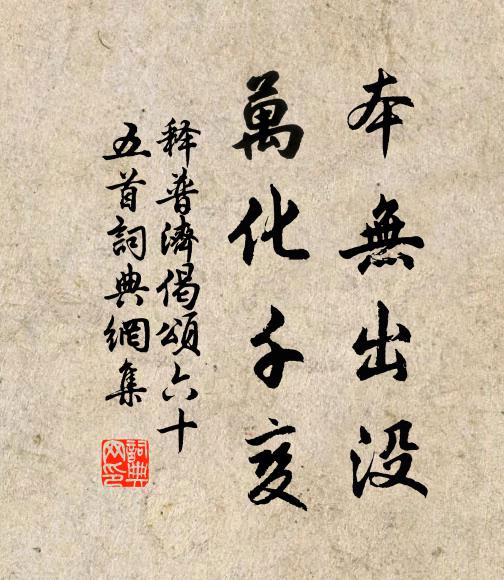 本無出没
萬化千变
释普濟偈頌六十
五首詞典網集
詞典網印